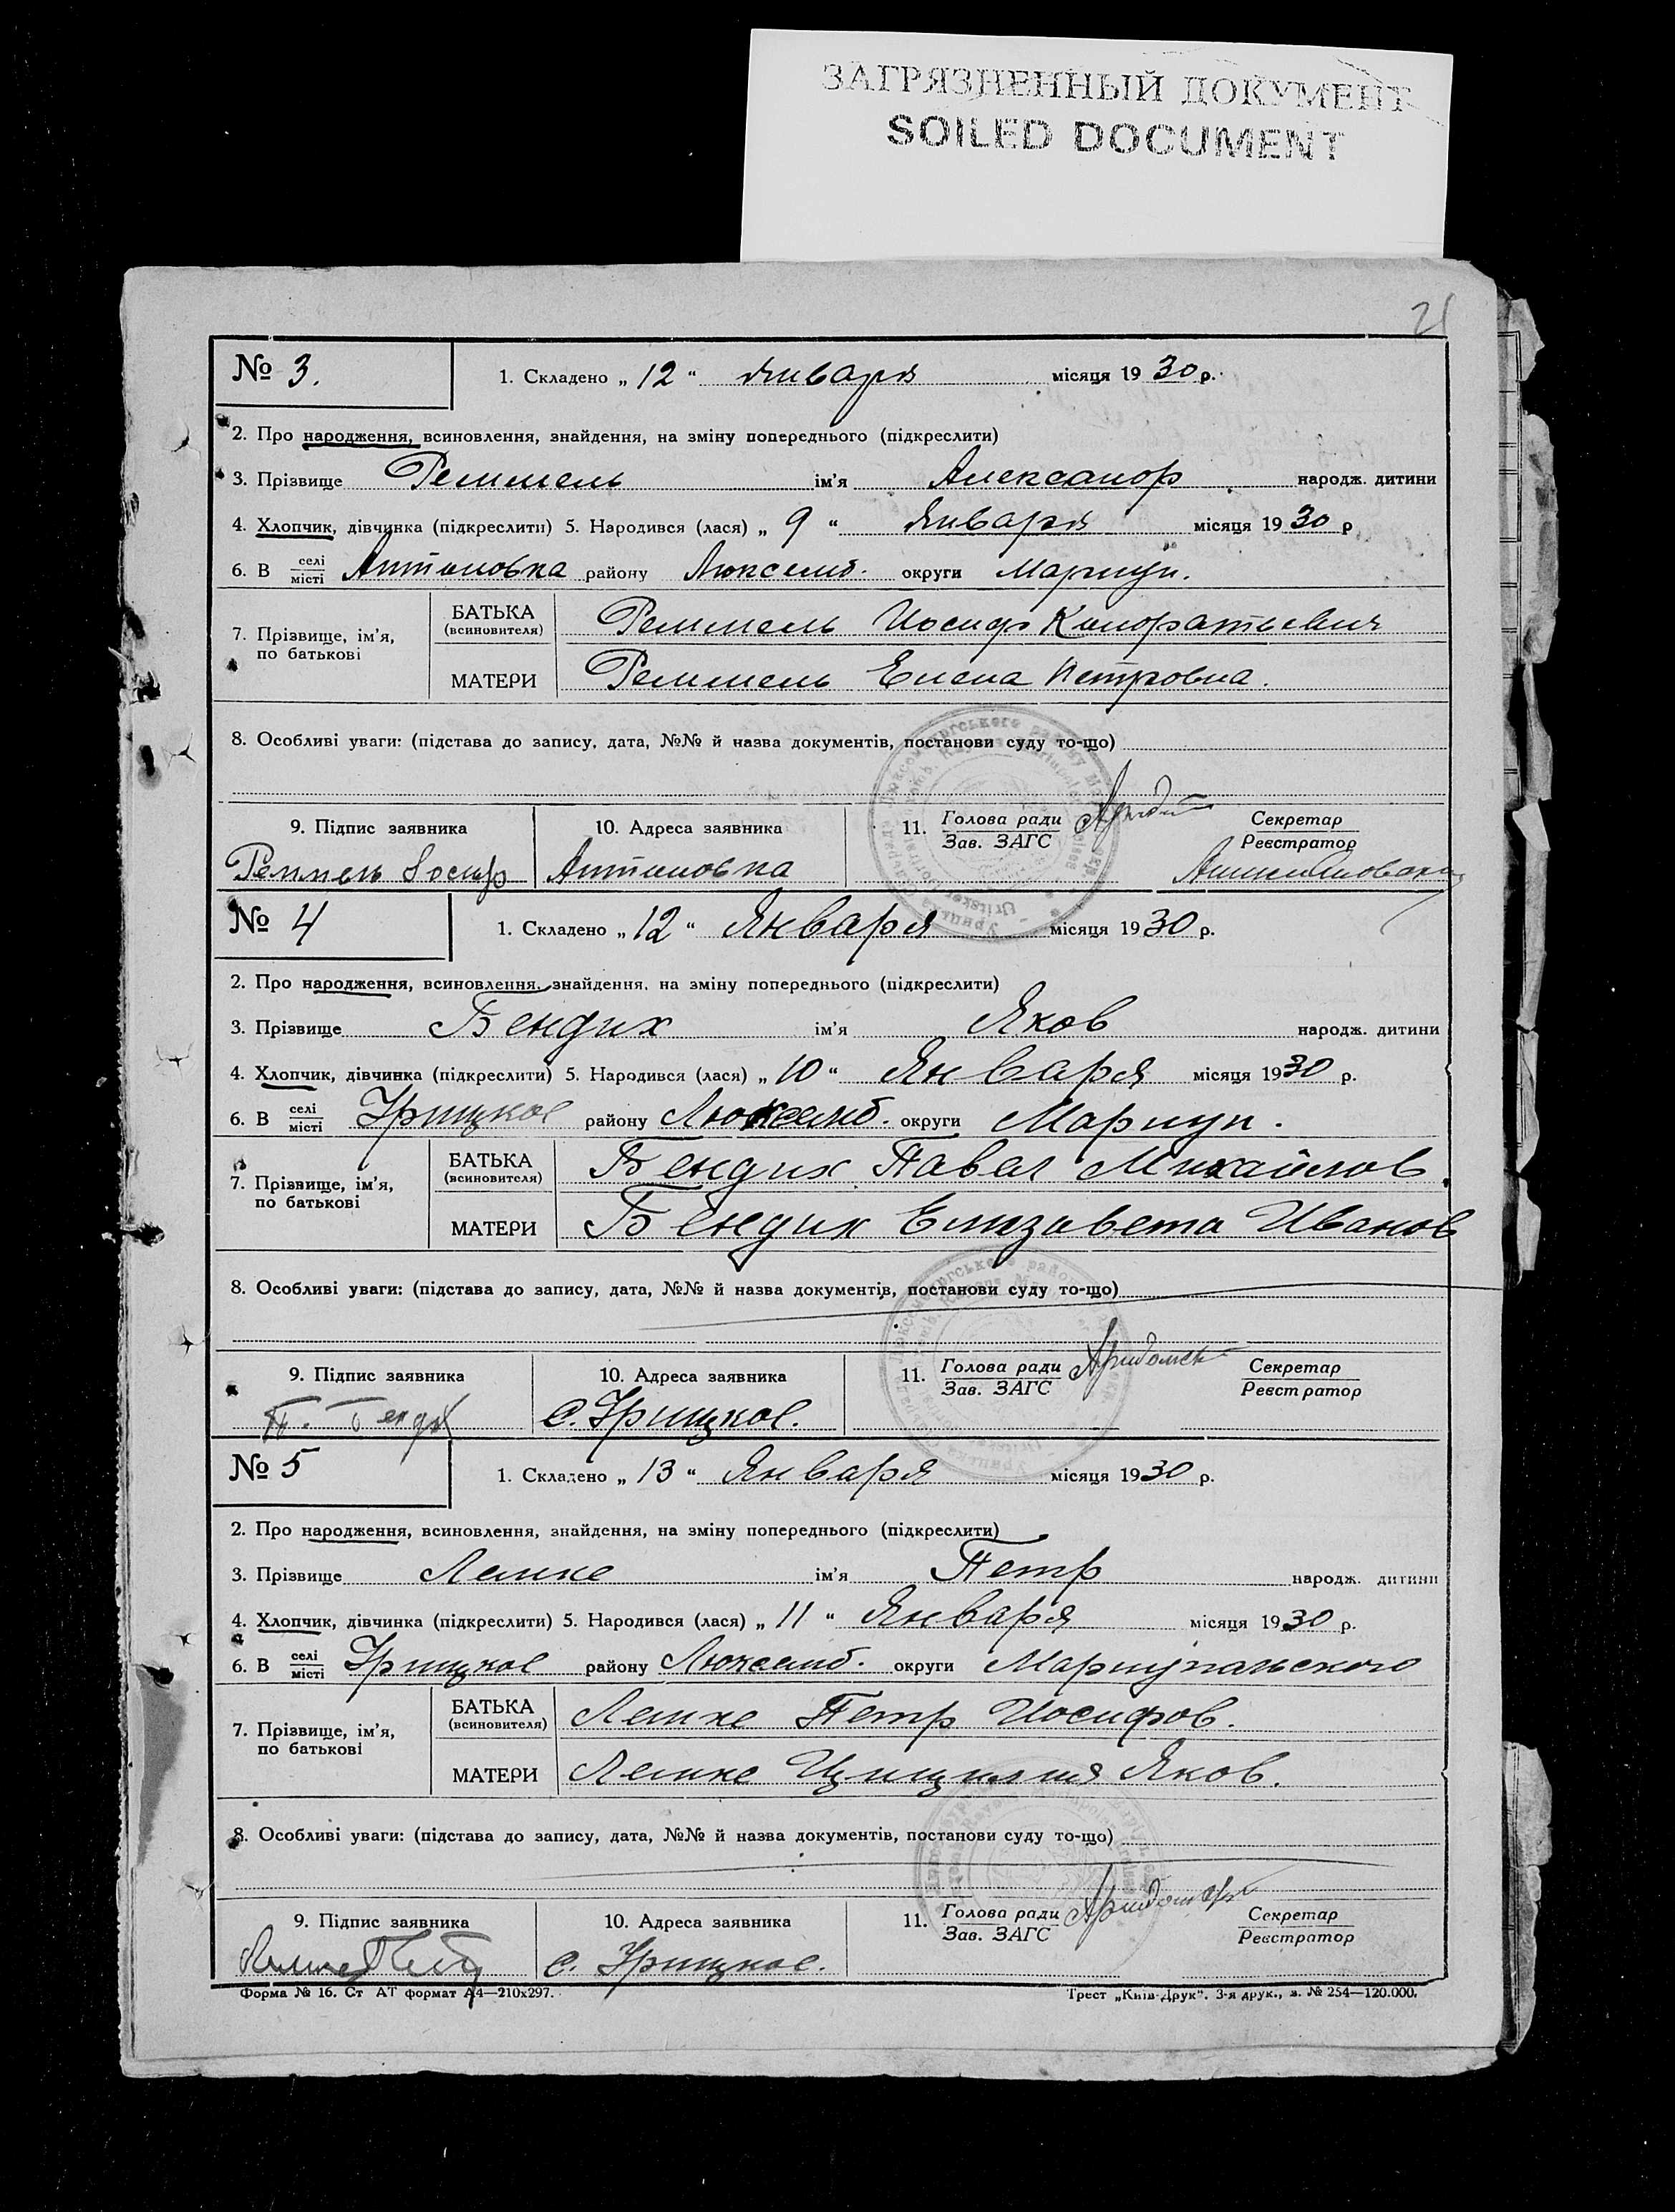 ЗАГРЯЗНЕННЫЙ ДОКУМЕНТ
SOILED DOCUMENT
21
№ 3. 1. Складено „ 12 “ Января місяця 19 30 р.
2. Про народження, всиновлення, знайдення, на зміну попереднього (підкреслити)
3. Прізвище Реммель ім'я Александр народж. дитини
4. Хлопчик, дівчинка (підкреслити) 5. Народився (лася) „ 9 “ Января місяця 19 30 р
6. В селі/місті Антоновка району Люксемб. округи Мариуп.
7. Прізвище, ім'я, по батькові
БАТЬКА (всиновителя) Реммель Иосиф Кондратьевич
МАТЕРИ Реммель Елена Петровна.
8. Особливі уваги: (підстава до запису, дата, №№ й назва документів, постанови суду то-що)
9. Підпис заявника 10. Адреса заявника 11. Голова ради/Зав. ЗАГС Секретар/Реєстратор
Реммель Антоновка
№ 4 1. Складено „ 12 “ Января місяця 19 30 р.
2. Про народження, всиновлення, знайдення, на зміну попереднього (підкреслити)
3. Прізвище Бендих ім'я Яков народж. дитини
4. Хлопчик, дівчинка (підкреслити) 5. Народився (лася) „ 10 “ Января місяця 19 30 р.
6. В селі/місті Урицкое району Люксемб. округи Мариуп.
7. Прізвище, ім'я, по батькові
БАТЬКА (всиновителя) Бендих Павел Михайлов.
МАТЕРИ Бендих Елизавета Иванов
8. Особливі уваги: (підстава до запису, дата, №№ й назва документів, постанови суду то-що)
9. Підпис заявника 10. Адреса заявника 11. Голова ради/Зав. ЗАГС Секретар/Реєстратор
П. Бендих с. Урицкое.
№ 5 1. Складено „ 13 “ Января місяця 19 30 р.
2. Про народження, всиновлення, знайдення, на зміну попереднього (підкреслити)
3. Прізвище Лемке ім'я Петр народж. дитини
4. Хлопчик, дівчинка (підкреслити) 5. Народився (лася) „ 11 “ Января місяця 19 30 р.
6. В селі/місті Урицкое району Люксемб. округи Мариупольского
7. Прізвище, ім'я, по батькові
БАТЬКА (всиновителя) Лемке Петр Иосифов.
МАТЕРИ Лемке Цицилия Яков.
8. Особливі уваги: (підстава до запису, дата, №№ й назва документів, постанови суду то-що)
9. Підпис заявника 10. Адреса заявника 11. Голова ради/Зав. ЗАГС Секретар/Реєстратор
с. Урицкое.
Форма № 16. Ст АТ формат А4—210х297. Трест „Київ-Друк“. 3-я друк., з. № 254—120.000.